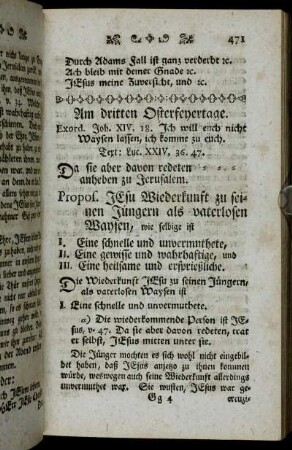 471
Durch Adams Fall ist ganz verderbt ꝛc.
Ach bleib mit deiner Gnade ꝛc.
JEsus meine Zuversicht, und ꝛc.
Am dritten Osterfeyertage.
Exord. Joh. XIV. 18. Ich will euch nicht
Waysen lassen, ich komme zu euch.
Text: Luc. XXIV, 36. 47.
Da sie aber davon redeten
anheben zu Jerusalem.
Propos. JEsu Wiederkunft zu sei-
nen Jüngern als vaterlosen
Waysen, wie selbige ist
I. Eine schnelle und unvermuthete,
II. Eine gewisse und wahrhaftige, und
III. Eine heilsame und ersprießliche.
Die Wiederkunft JEsu zu seinen Jüngern,
als vaterlosen Waysen ist
I. Eine schnelle und unvermuthete.
a) Die wiederkommende Person ist JE-
sus, v. 47. Da sie aber davon redeten, trat
er selbst, JEsus mitten unter sie.
Die Jünger mochten es sich wohl nicht eingebil-
det haben, daß JEsus anjetzo zu ihnen kommen
würde, weswegen auch seine Wiederkunft allerdings
unvermuthet war. Sie wusten, JEsus war ge-
Gg 4 creuzi-